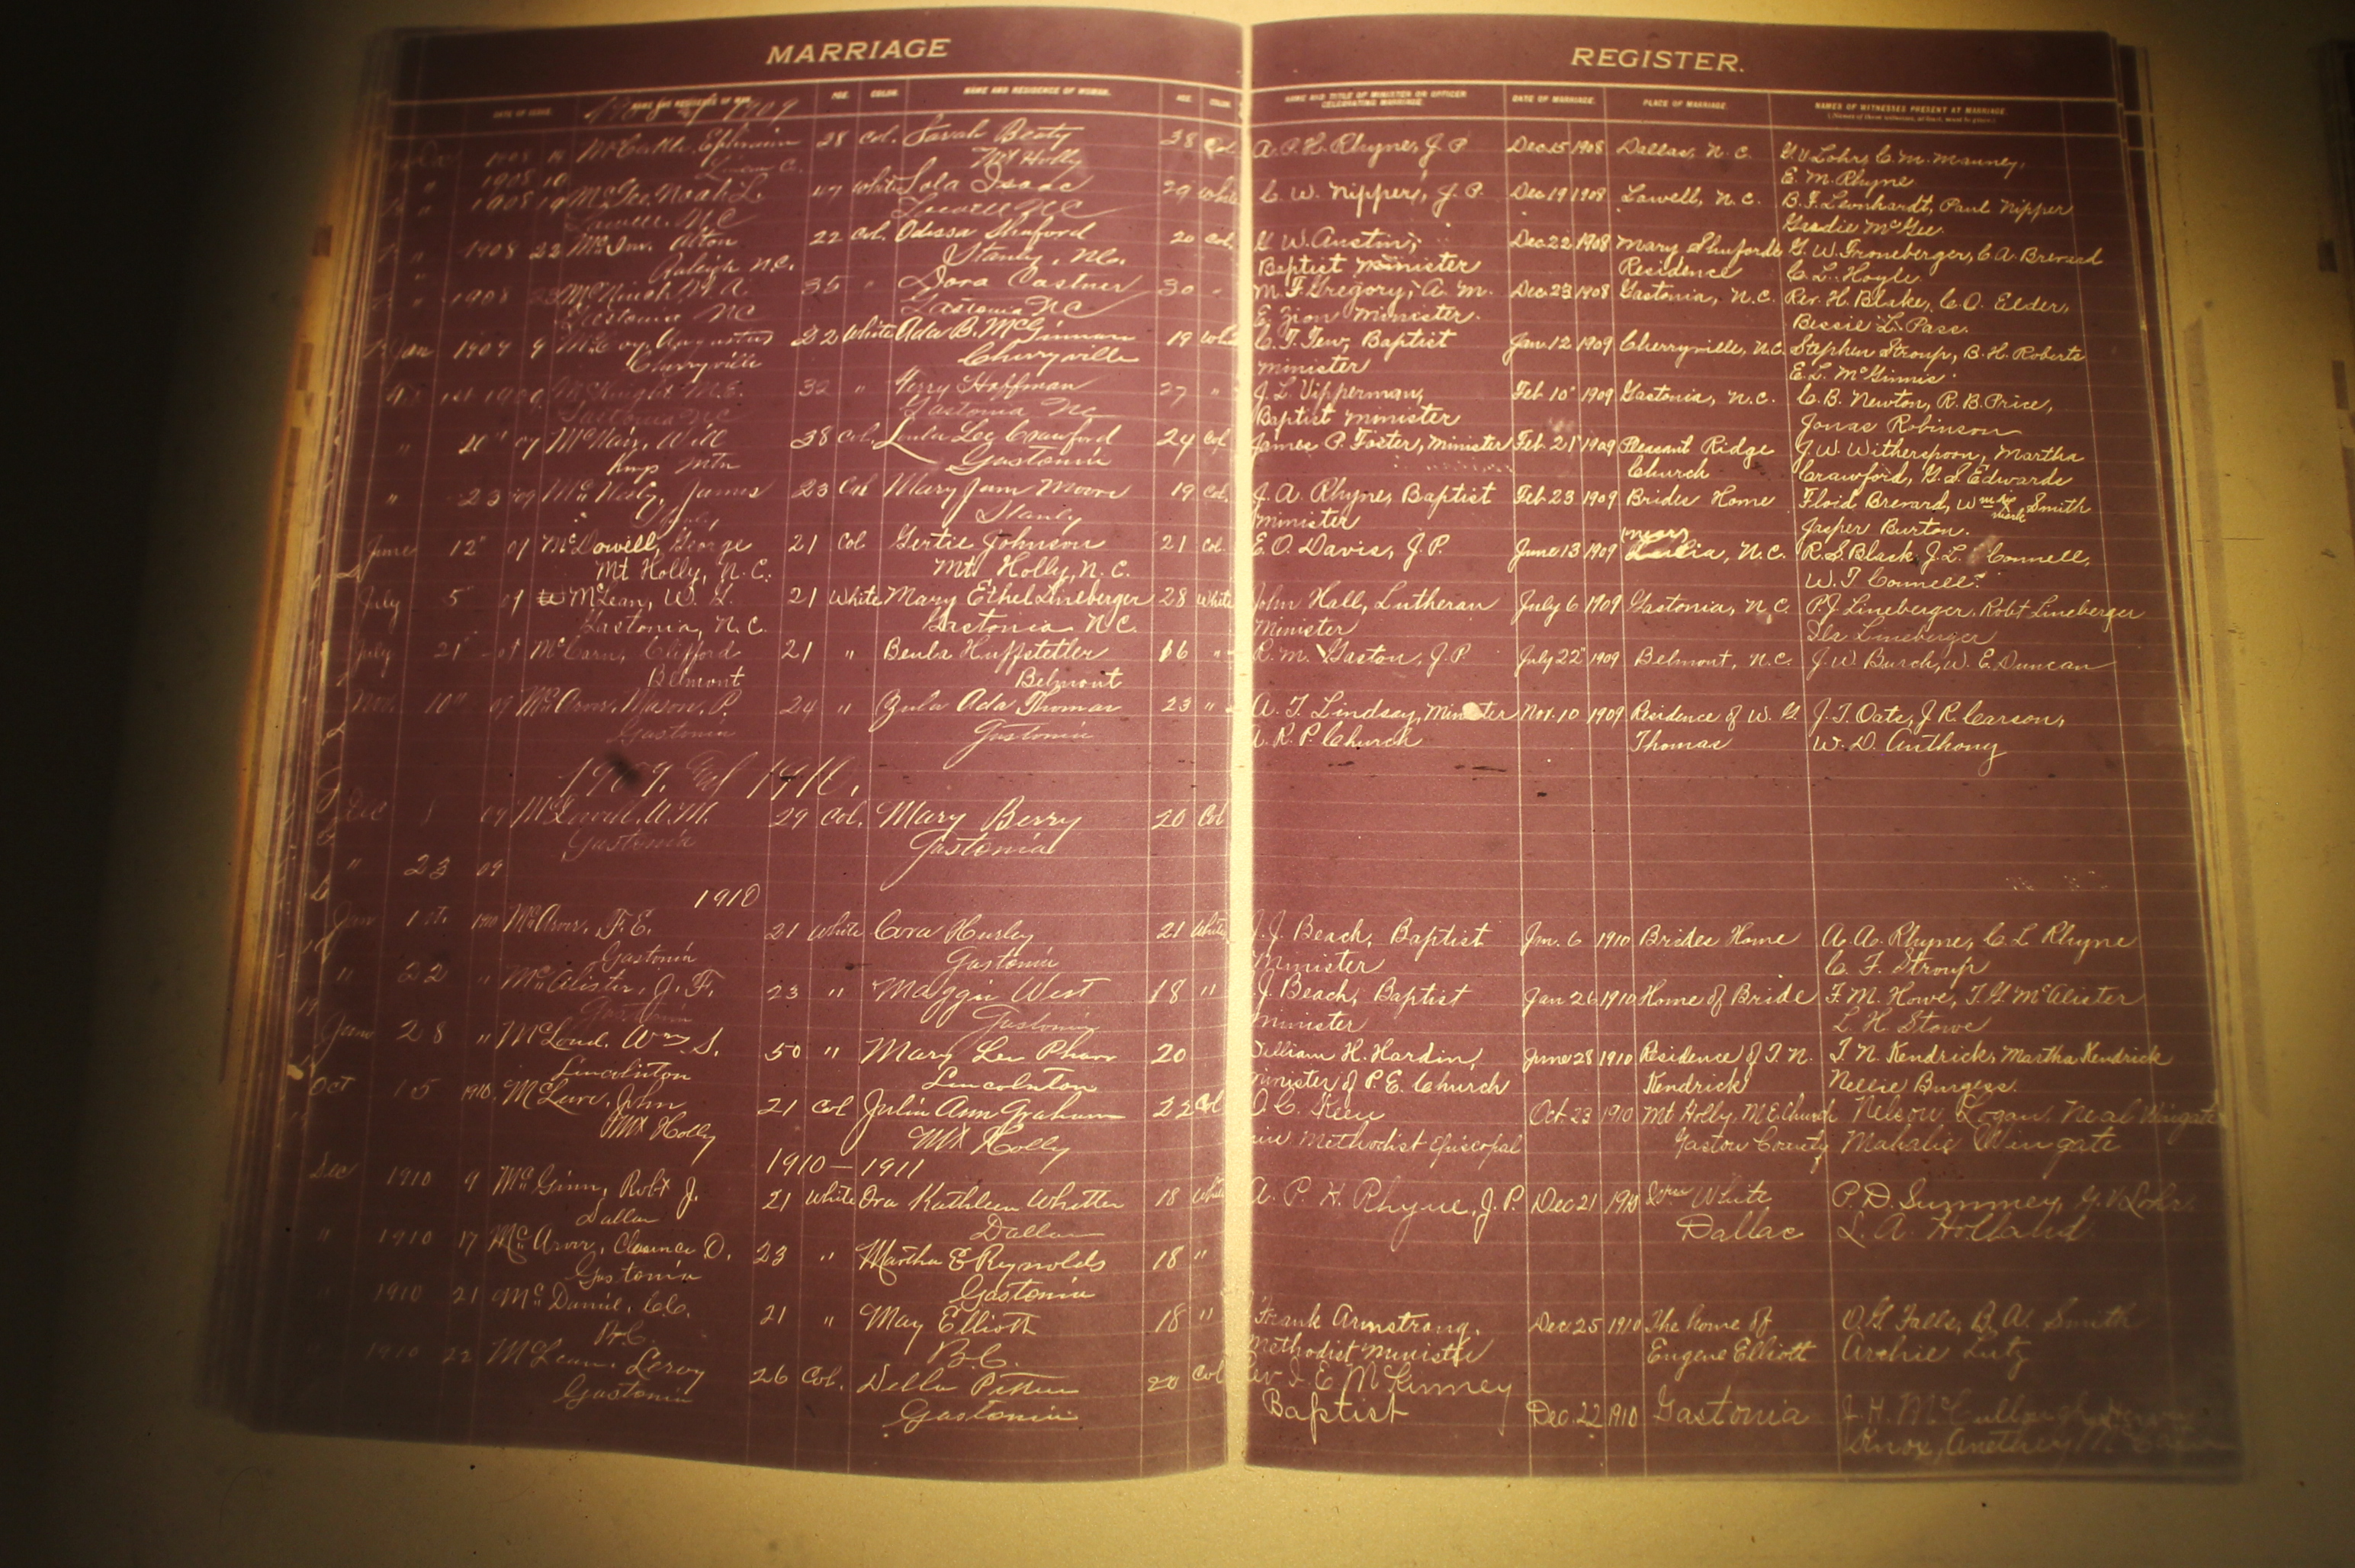 MARRIAGE
REGISTER.
DATE OF ISSUE. NAME AND RESIDENCE OF MAN. AGE. COLOR. NAME AND RESIDENCE OF WOMAN. AGE. COLOR. NAME AND TITLE OF MINISTER OR OFFICER CELEBRATING MARRIAGE. DATE OF MARRIAGE. PLACE OF MARRIAGE. NAMES OF WITNESSES PRESENT AT MARRIAGE.
1908 1909
1908 Ephraim 38 Col. Sarah Beaty 38 Col A. P. H. Rhyne, J. P. Dec 15 1908 Dallas, N. C. G. V. Lohr, C. M. Mauney,
Mt Holly E. M. Rhyne
" 1908 19 McGee, Noah L. 47 White Lola Isaac 29 White C. W. Nipper, J. P. Dec 19 1908 Lowell, N. C. B. F. Leonhardt, Paul Nipper
Lowell N C Lowell N C Gradie McGee
" 1908 22 Alton 22 Col. Odessa Shuford 20 Col. W. Austin, Dec 22 1908 Mary Shufords G. W. Froneberger, C. A. Brevard
Raleigh N.C. Stanly, N.C. Baptist Minister Residence C. L. Hoyle
" 1908 35 " Dora Castner 30 " M. F. Gregory, A. M. Dec 23 1908 Gastonia, N. C. Rev. H. Blake, C. O. Elder,
Gastonia N C Gastonia N C E Zion Minister. Bessie L. Pass.
Jan 1909 9 McCoy Augustus 22 White Ada B. McGinnas 19 White C. F. Tew, Baptist Jan. 12 1909 Cherryville, N.C. Stephen Stroup, B. H. Roberts
Cherryville Cherryville Minister E. L. McGinnis
1909 McKnight M. E. 32 " Hoffman 27 " J. L. Vipperman, Feb 10 1909 Gastonia, N. C. C. B. Newton, R. B. Price,
Gastonia N C Gastonia N C Baptist Minister Jonas Robinson
" 20" 09 McNair, Will 38 Col. Lula Lee Crawford 24 Col James P. Foster, Minister Feb. 21 1909 Pleasant Ridge J. W. Witherspoon, Martha
Kings Mtn Gastonia Church Crawford, G. S. Edwards
" 23 09 James 23 Col Mary Jane Moore 19 Col. J. A. Rhyne, Baptist Feb 23 1909 Brides Home Floid Brevard, Wm his mark Smith
Stanly Minister Jasper Burton.
June 12" 09 McDowell, George 21 Col Gertie Johnson 21 Col. E. O. Davis, J. P. June 13 1909 near Lucia, N. C. R. S. Black, J. L. Connell,
Mt Holly, N. C. Mt Holly, N. C. W. T Connell
July 5" 09 McLean, W. L. 21 White Mary Ethel Lineberger 28 White John Hall, Lutheran July 6 1909 Gastonia, N. C. P. J. Lineberger, Robt Lineberger
Gastonia, N. C. Gastonia N C. Minister Ila Lineberger
July 21" 09 McCarn, Clifford 21 " Beula Huffstetler 16 " R. M. Gaston, J. P. July 22" 1909 Belmont, N. C. J. W. Burch, W. E. Duncan
Belmont Belmont
Nov. 10" 09 McArver, Mason, P. 24 " Zula Ada Thomas 23 " A. T. Lindsay, Minister Nov. 10 1909 Residence of W. G. J. T. Oats, J. R. Carson,
Gastonia Gastonia A. R. P. Church Thomas W. D. Anthony
1909 and 1910.
Dec 09 W.M. 29 Col. Mary Berry 20 Col
Gastonia Gastonia
" 23 09
1910
Jan 1st. 1910 McArver, F. E. 21 White Cora Hurley 21 White J. J. Beach, Baptist Jan. 6 1910 Brides Home A. A. Rhyne, C. L Rhyne
Gastonia Gastonia Minister C. F. Stroup
" 22 " McAlister, J. F. 23 " Maggie West 18 " J. J. Beach, Baptist Jan 26 1910 Home of Bride F. M. Howe, T. G. McAlister
Gastonia Gastonia Minister L. H. Stowe
June 28 " McLoud. Wm S. 50 " Mary Lee Pharr 20 William H. Hardin, June 28 1910 Residence of T. N. T. N. Kendrick, Martha Kendrick
Lincolnton Lincolnton Minister of P. E. Church Kendrick Nellie Burgess.
Oct 15 1910 McLure, John 21 Col Julia Ann Graham 22 Col Oct. 23 1910 Mt Holly, M E Church Nelson Logan, Neal Wingate
Mt Holly Mt Holly Methodist Episcopal Gaston County Mahalie Wingate
1910 — 1911
Dec 1910 9 McGinn, Robt J. 21 White Ora Kathleen Whitten 18 White A. P. H Rhyne, J. P. Dec 21 1910 White P. D. Summey, G. V. Lohr
Dallas Dallas Dallas L. A. Holland
" 1910 17 McArver, Clarence O. 23 " Martha E Reynolds 18 "
Gastonia Gastonia
" 1910 21 McDaniel, C.C. 21 " May Elliott 18 " Frank Armstrong, Dec. 25 1910 The home of O. G. Falls, B. A. Smith
B.C. B.C. Methodist Minister Eugene Elliott Archie Lutz
" 1910 22 McLean. Leroy 26 Col. Della 20 Col Rev I. E. McKinney
Gastonia Gastonia Baptist Dec. 22 1910 Gastonia J. H. McCullough
Knox,